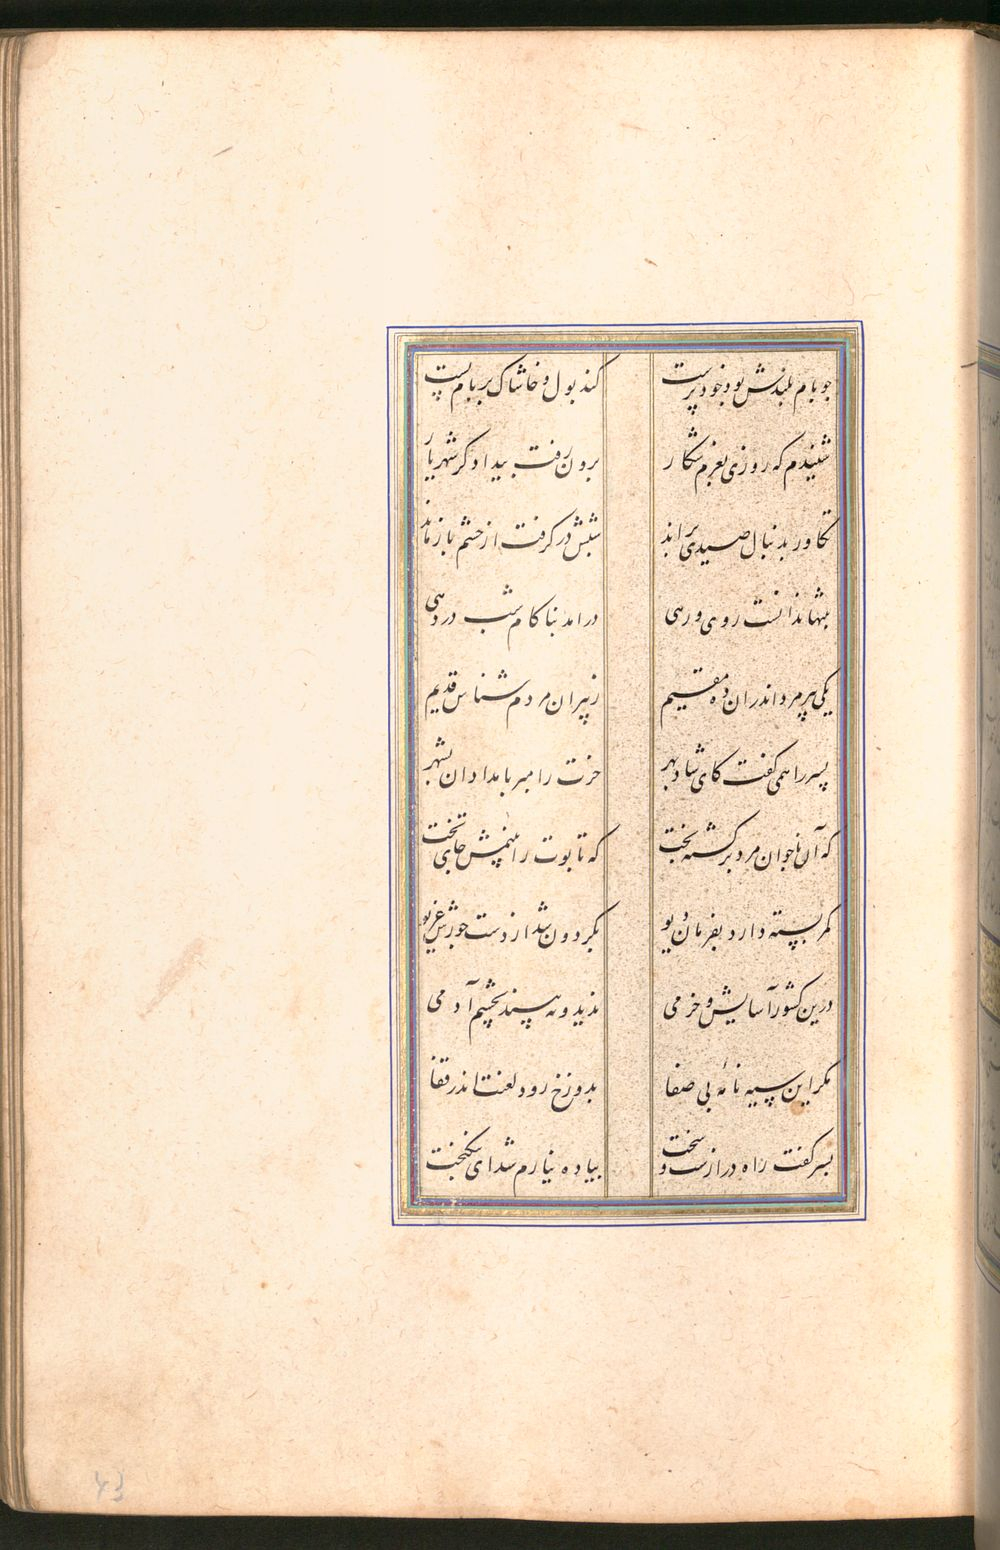 چو بام بلندش بود خودپرست کند بول و خاشاک بر بام پست
شنیدم که روزی بعزم شکار برون رفت بیدادگر شهریار
تکاور بدنبال صیدی براند شبش در گرفت از حشم بازماند
بتنها ندانست روی و رهی درآمد بناکام شب در دهی
یکی پیرمرد اندران ده مقیم ز پیران مردم شناس قدیم
پسر را همی گفت کای شاد بهر خرت را مبر بامدادان بشهر
که آن ناجوانمرد برگشته بخت که تابوت را بینمش جای تخت
کمر بسته دارد بفرمان دیو بگردون شد از دست جورش غریو
درین کشور آسایش و خرمی ندید و نبیند بچشم آدمی
مگر این سیه نامهٔ بی صفا بدوزخ رود لعنت اندر قفا
پسر گفت راه درازست و سخت پیاده نیارم شد ای نیکبخت
43